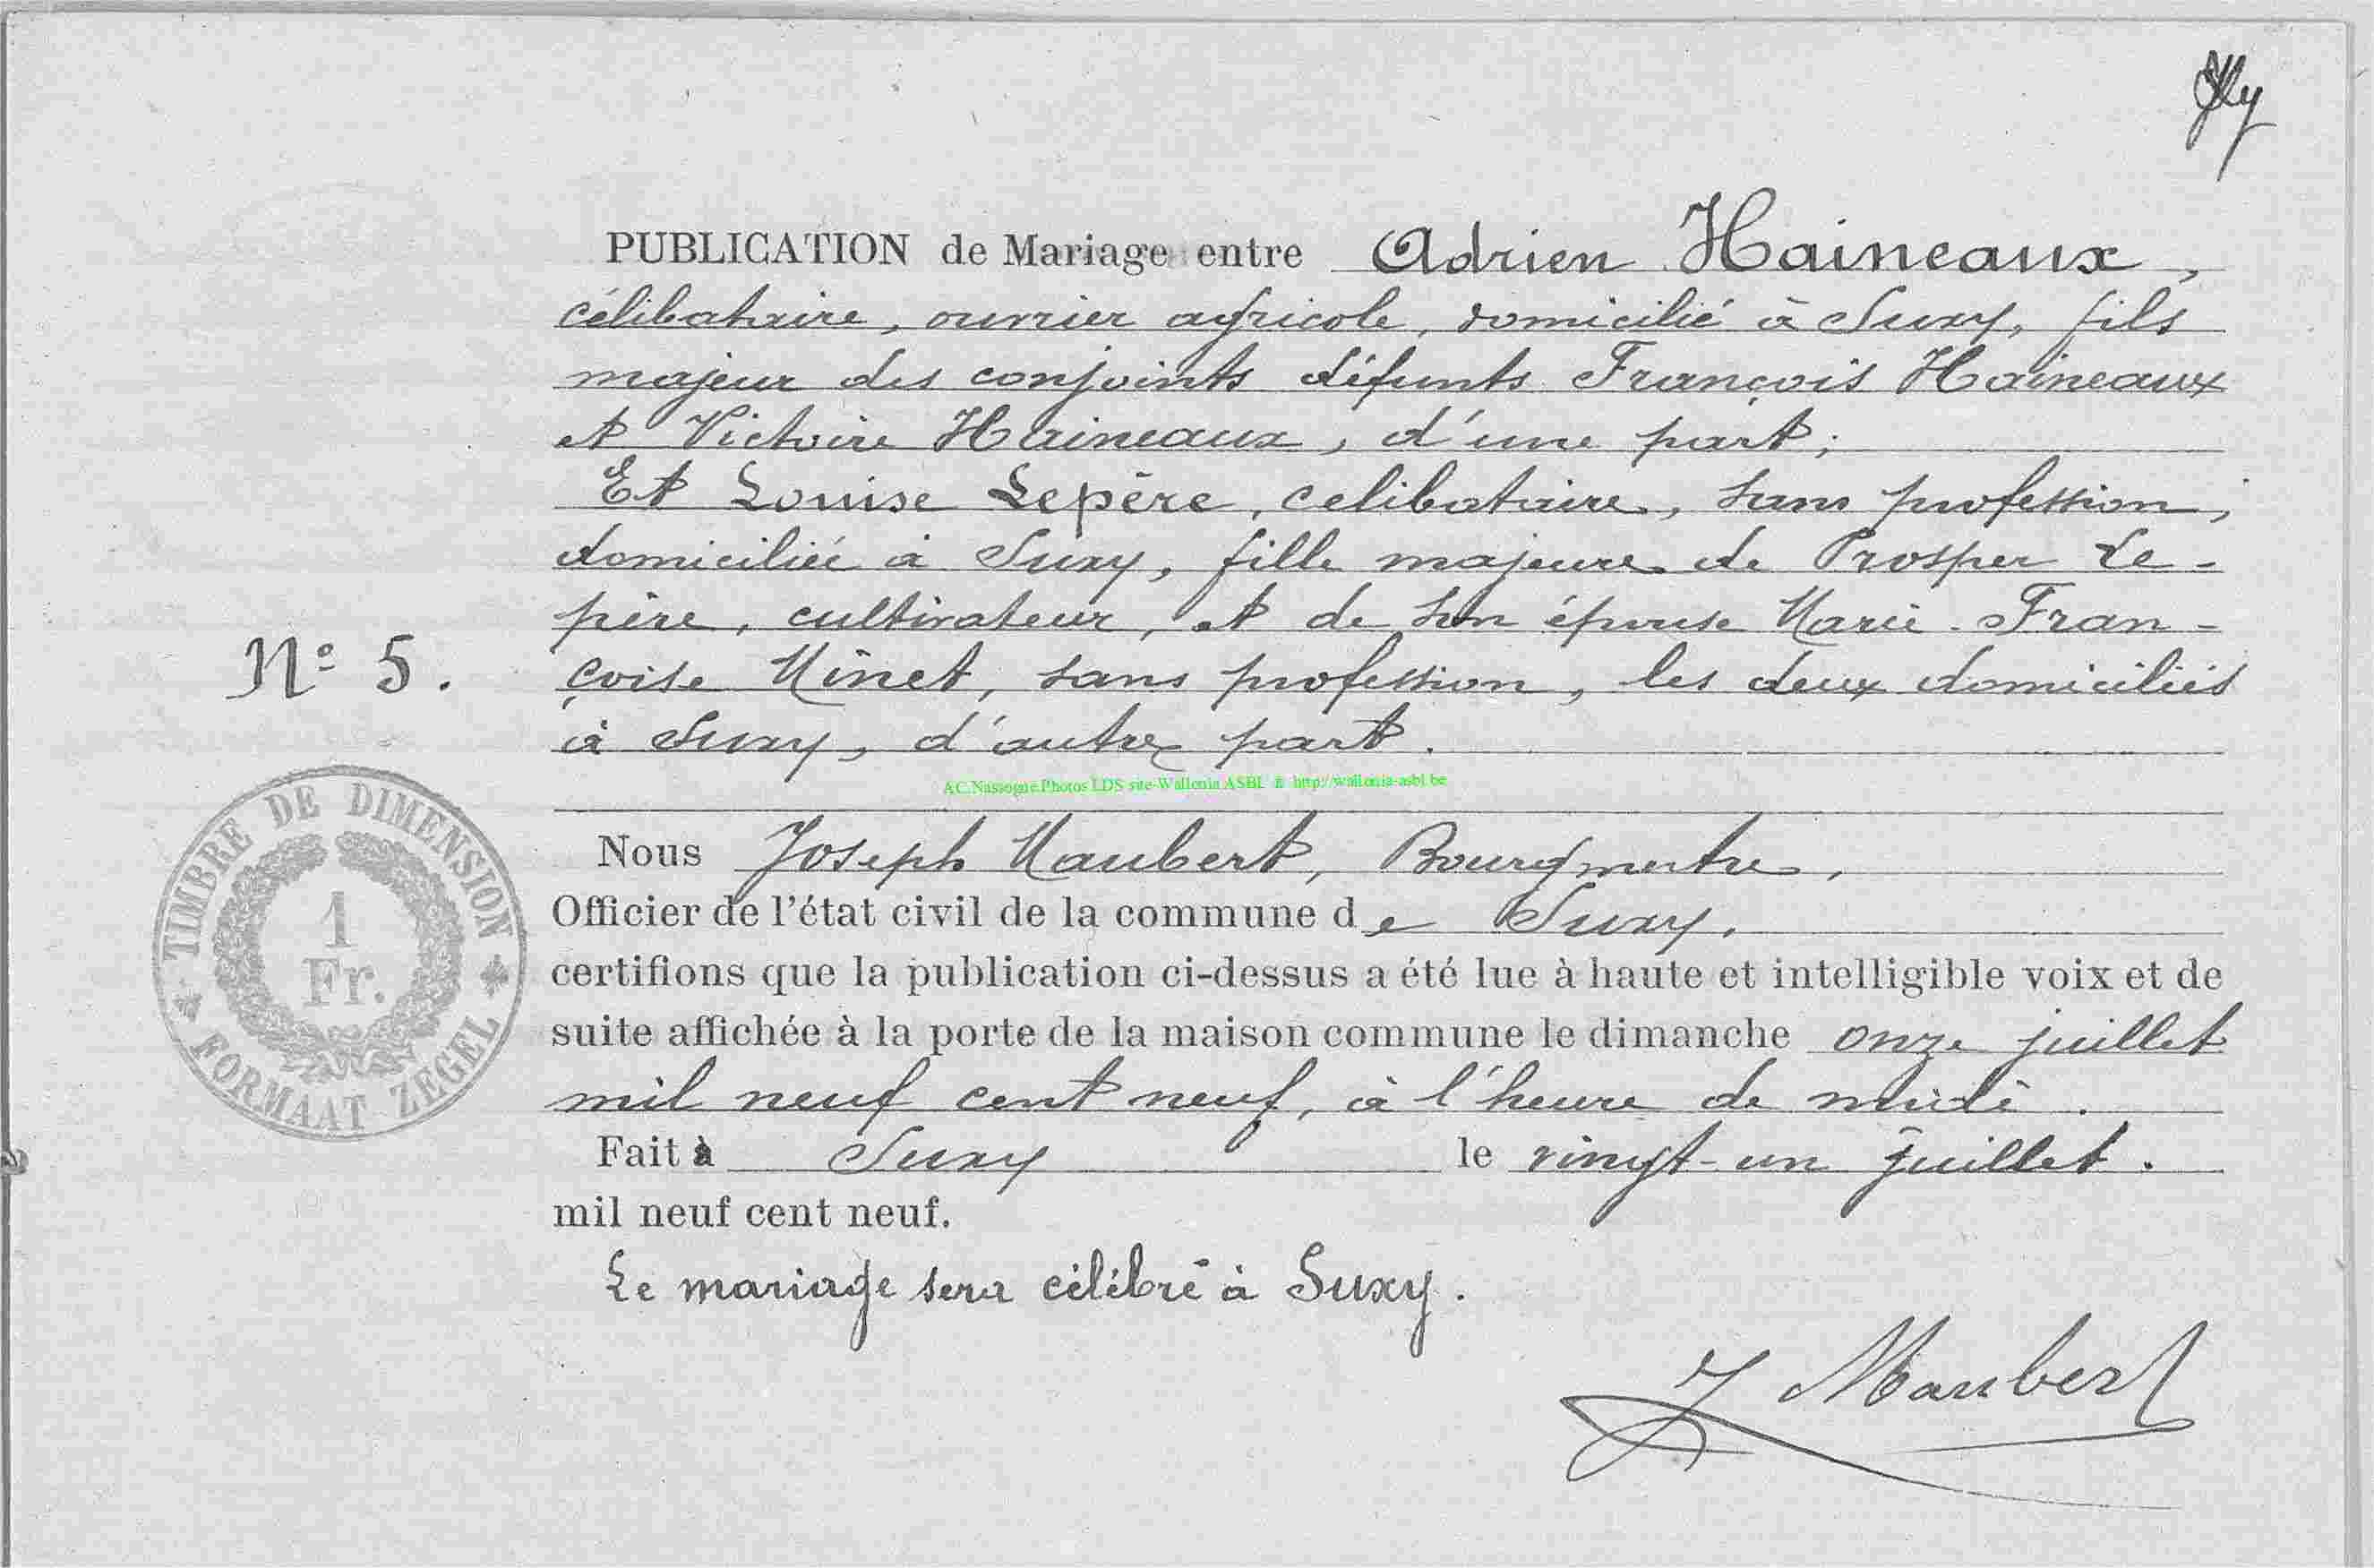 PUBLICATION de Mariage entre Adrien Haineaux,
célibataire, ouvrier agricole, domicilié à Suxy, fils
majeur des conjoints défunts François Haineaux
et Victoire Haineaux, d'une part;
Et Louise Lepère, celibataire, sans profession,
domiciliée à Suxy, fille majeure de Prosper Le-
père, cultivateur, et de son épouse Marie-Fran-
N° 5.
çoise Minet, sans profession, les deux domiciliés
à Suxy, d'autre part.
AC.Nassogne.Photos LDS site-Wallonia ASBL & http://wallonia-asbl.be
TIMBRE DE DIMENSION
1
Fr.
FORMAAT ZEGEL
Nous Joseph Maubert, Bourgmestre,
Officier de l'état civil de la commune de Suxy,
certifions que la publication ci-dessus a été lue à haute et intelligible voix et de
suite affichée à la porte de la maison commune le dimanche onze juillet
mil neuf cent neuf, à l'heure de midi.
Fait à Suxy le vingt-un juillet.
mil neuf cent neuf.
Le mariage sera célébré à Suxy.
J Maubert